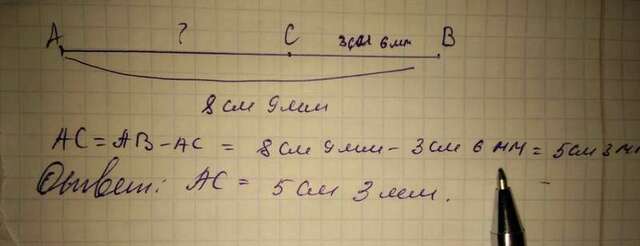 A ? C 3см 6мм B
8 см 9мм
AC = AB - AC = 8 см 9мм - 3см 6 мм = 5см 3 мм
Ответ: AC = 5 см 3 мм.